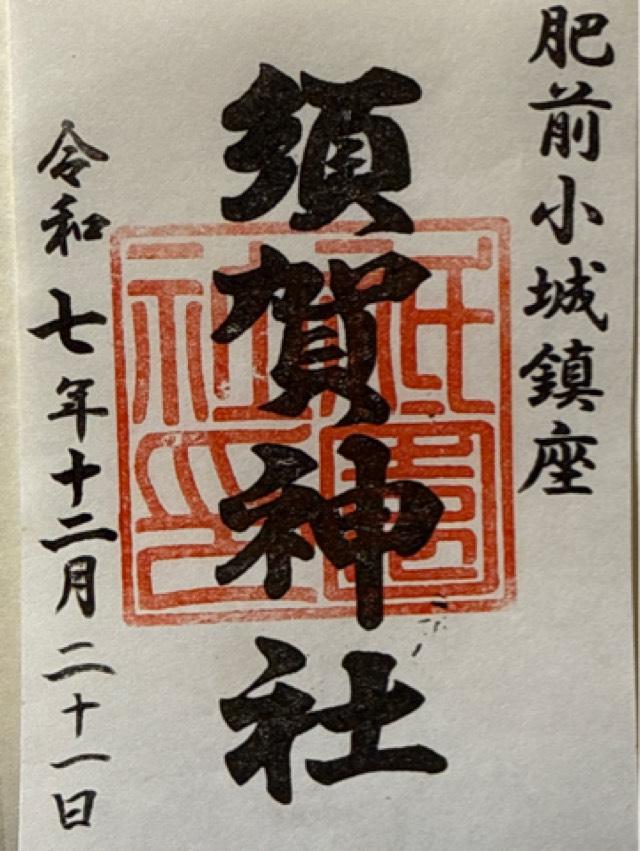 肥前小城鎮座
須賀神社
祇園社印
令和七年十二月二十一日